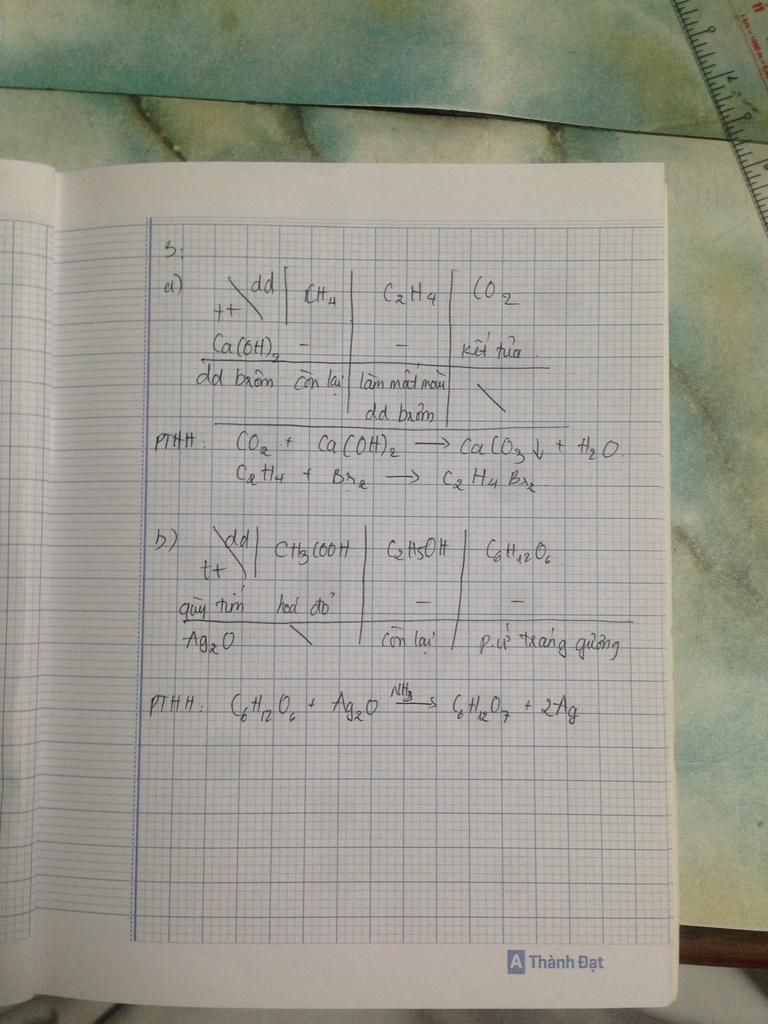 3:
a) dd CH4 C2H4 CO2
tt
Ca(OH)2 - - kết tủa
dd brôm còn lại làm mất màu
dd brôm
PTHH: CO2 + Ca(OH)2 → CaCO3↓ + H2O.
C2H4 + Br2 → C2H4Br2
b) dd CH3COOH C2H5OH C6H12O6
tt
quỳ tím hoá đỏ - -
Ag2O còn lại p.ư tráng gương
PTHH: C6H12O6 + Ag2O NH3→ C6H12O7 + 2Ag
A Thành Đạt